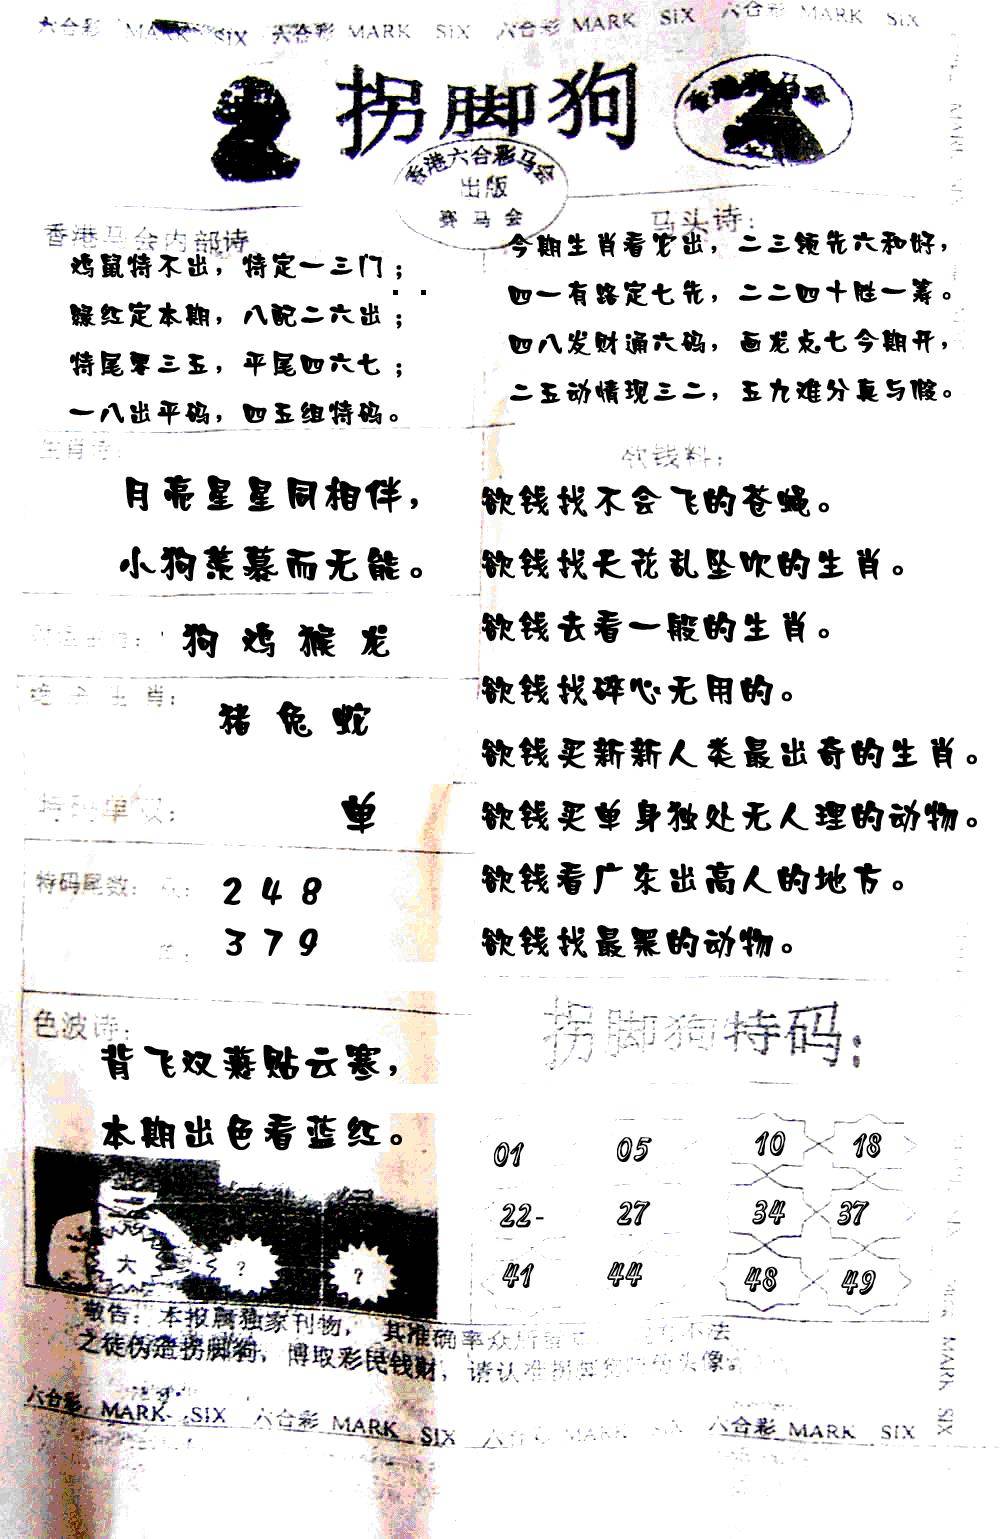 六合彩 MARK SIX 六合彩 MARK SIX 六合彩 MARK SIX 六合彩 MARK SIX
拐脚狗
香港六合彩马会
出版
赛马会
香港马会内部诗
鸡鼠特不出，特定一三门；
绿红定本期，八配二六出；
特尾零三五，平尾四六七；
一八出平码，四五组特码。
马头诗：
今期生肖看龙出，二三领先六和好，
四一有路定七先，二二四十胜一筹。
四八发财通六码，画龙点七今期开，
二五动情现三二，五九难分真与假。
生肖诗：
月亮星星同相伴，
小狗羡慕而无能。
狗 鸡 猴 龙
绝杀生肖：
猪 兔 蛇
特码单双：
单
特码尾数：
2 4 8
3 7 9
欲钱料：
欲钱找不会飞的苍蝇。
欲钱找天花乱坠吹的生肖。
欲钱去看一般的生肖。
欲钱找碎心无用的。
欲钱买新新人类最出奇的生肖。
欲钱买单身独处无人理的动物。
欲钱看广东出高人的地方。
欲钱找最累的动物。
色波诗：
背飞双燕贴云寒，
本期出色看蓝红。
大 ? ?
拐脚狗特码：
01 05 10 18
22- 27 34 37
41 44 48 49
敬告：本报属独家刊物，其准确率众所 不法
之徒伪造拐脚狗，博取彩民钱财，请认准拐脚狗 头像
六合彩 MARK SIX 六合彩 MARK SIX 六合彩 MARK SIX 六合彩 MARK SIX
MARK SIX